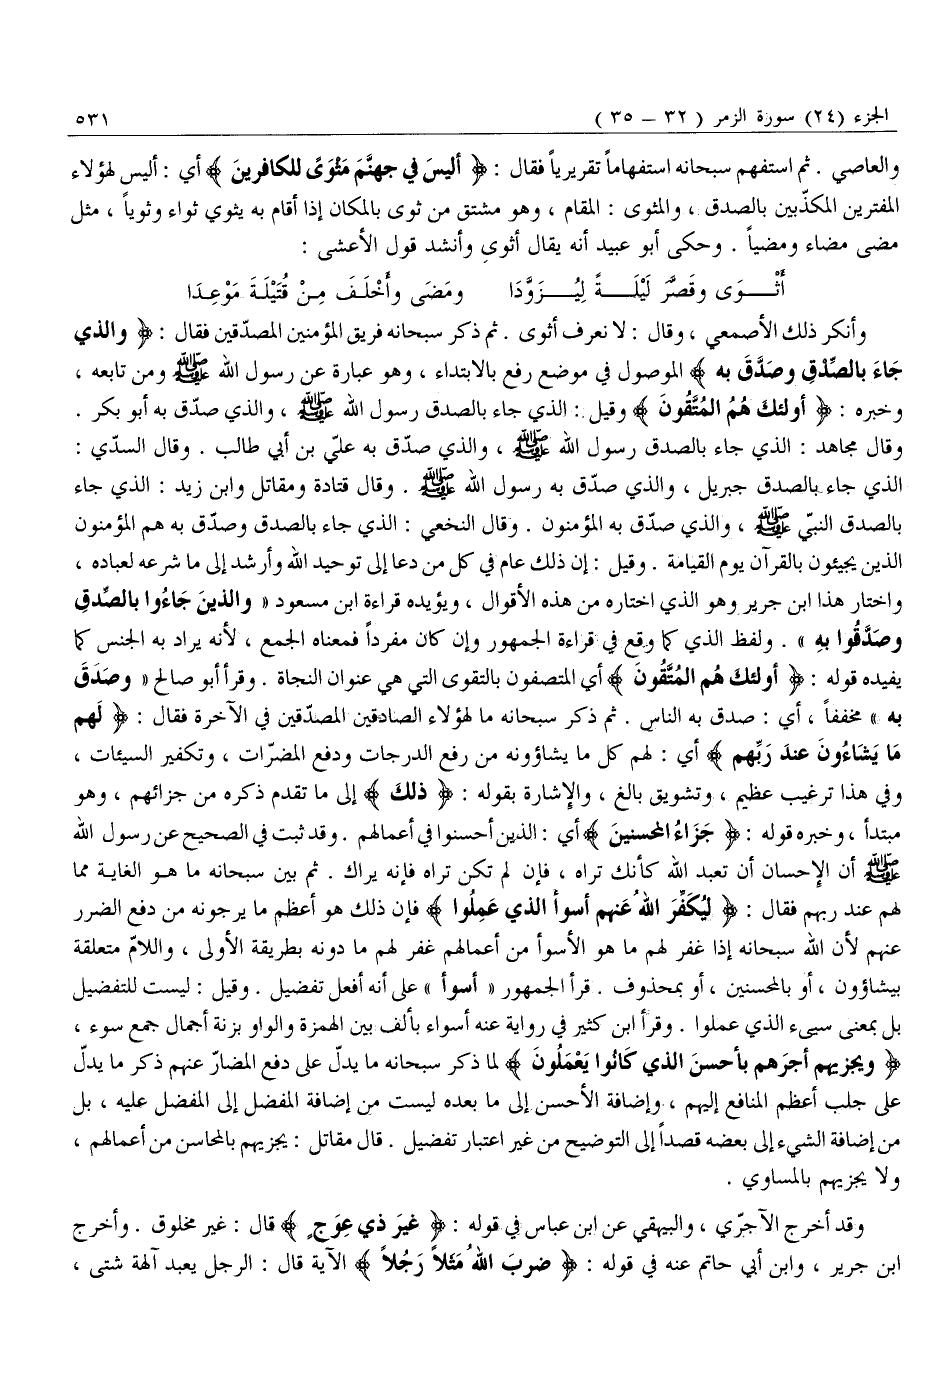 الجزء (٢٤) سورة الزمر ( ٣٢ – ٣٥ ) ٥٣١
والعاصي . ثم استفهم سبحانه استفهاماً تقريرياً فقال : ﴿ أليسَ في جهنَّمَ مَثْوَىً للكافرينَ ﴾ أي : أليس لهؤلاء
المفترين المكذّبين بالصدق ، والمثوى : المقام ، وهو مشتق من ثوى بالمكان إذا أقام به يثوي ثواء وثوياً ، مثل
مضى مضاء ومضياً . وحكى أبو عبيد أنه يقال أثوى وأنشد قول الأعشى :
أَثْـــوَى وقصَّرَ لَيْلَـــةً لِيُـــزَوَّدَا ومَضَى وأَخْلَـفَ مِـنْ قُتَيْلَـةَ مَوْعِـدَا
وأنكر ذلك الأصمعي ، وقال : لا نعرف أثوى . ثم ذكر سبحانه فريق المؤمنين المصدّقين فقال : ﴿ والذي
جَاءَ بالصِّدْقِ وصَدَّقَ به ﴾ الموصول في موضع رفع بالابتداء ، وهو عبارة عن رسول الله ﷺ ومن تابعه ،
وخبره : ﴿ أولئكَ هُمُ المُتَّقُونَ ﴾ وقيل : الذي جاء بالصدق رسول الله ﷺ ، والذي صدّق به أبو بكر .
وقال مجاهد : الذي جاء بالصدق رسول الله ﷺ ، والذي صدّق به عليّ بن أبي طالب . وقال السدّي :
الذي جاء بالصدق جبريل ، والذي صدّق به رسول الله ﷺ . وقال قتادة ومقاتل وابن زيد : الذي جاء
بالصدق النبيّ ﷺ ، والذي صدّق به المؤمنون . وقال النخعي : الذي جاء بالصدق وصدّق به هم المؤمنون
الذين يجيئون بالقرآن يوم القيامة . وقيل : إن ذلك عام في كل من دعا إلى توحيد الله وأرشد إلى ما شرعه لعباده ،
واختار هذا ابن جرير وهو الذي اختاره من هذه الأقوال ، ويؤيده قراءة ابن مسعود « والذينَ جَاءُوا بالصِّدقِ
وصَدَّقُوا بِهِ » . ولفظ الذي كما وقع في قراءة الجمهور وإن كان مفرداً فمعناه الجمع ، لأنه يراد به الجنس كما
يفيده قوله : ﴿ أولئكَ هُم المُتَّقُونَ ﴾ أي المتصفون بالتقوى التي هي عنوان النجاة . وقرأ أبو صالح « وصَدَقَ
به » مخففاً ، أي : صدق به الناس . ثم ذكر سبحانه ما لهؤلاء الصادقين المصدّقين في الآخرة فقال : ﴿ لَهم
مَا يَشَاءُونَ عندَ رَبِّهم ﴾ أي : لهم كل ما يشاؤونه من رفع الدرجات ودفع المضرّات ، وتكفير السيئات ،
وفي هذا ترغيب عظيم ، وتشويق بالغ ، والإشارة بقوله : ﴿ ذلكَ ﴾ إلى ما تقدم ذكره من جزائهم ، وهو
مبتدأ ، وخبره قوله : ﴿ جَزَاءُ المحسنينَ ﴾ أي : الذين أحسنوا في أعمالهم . وقد ثبت في الصحيح عن رسول الله
ﷺ أن الإحسان أن تعبد الله كأنك تراه ، فإن لم تكن تراه فإنه يراك . ثم بين سبحانه ما هـو الغايـة مما
لهم عند ربهم فقال : ﴿ لِيُكفِّرَ اللهُ عنهم أسوأَ الذي عَمِلُوا ﴾ فإن ذلك هو أعظم ما يرجونه من دفع الضرر
عنهم لأن الله سبحانه إذا غفر لهم ما هو الأسوأ من أعمالهم غفر لهم ما دونه بطريقة الأولى ، واللامّ متعلقة
بيشاؤون ، أو بالمحسنين ، أو بمحذوف . قرأ الجمهور « أسوأ » على أنه أفعل تفضيل . وقيل : ليست للتفضيل
بل بمعنى سيىء الذي عملوا . وقرأ ابن كثير في رواية عنه أسواء بألف بين الهمزة والواو بزنة أجمال جمع سوء ،
﴿ ويجزيهم أجرَهم بأحسنَ الذي كَانُوا يَعْمَلُونَ ﴾ لما ذكر سبحانه ما يدلّ على دفع المضارّ عنهم ذكر ما يدلّ
على جلب أعظم المنافع إليهم ، وإضافة الأحسن إلى ما بعده ليست من إضافة المفضل إلى المفضل عليه ، بل
من إضافة الشيء إلى بعضه قصداً إلى التوضيح من غير اعتبار تفضيل . قال مقاتل : يجزيهم بالمحاسن من أعمالهم ،
ولا يجزيهم بالمساوي .
وقد أخرج الآجرّي ، والبيهقي عن ابن عباس في قوله : ﴿ غيرَ ذي عِوَجٍ ﴾ قال : غير مخلوق . وأخرج
ابن جرير ، وابن أبي حاتم عنه في قوله : ﴿ ضربَ اللهُ مَثَلاً رَجُلاً ﴾ الآية قال : الرجل يعبد آلهة شتى ،